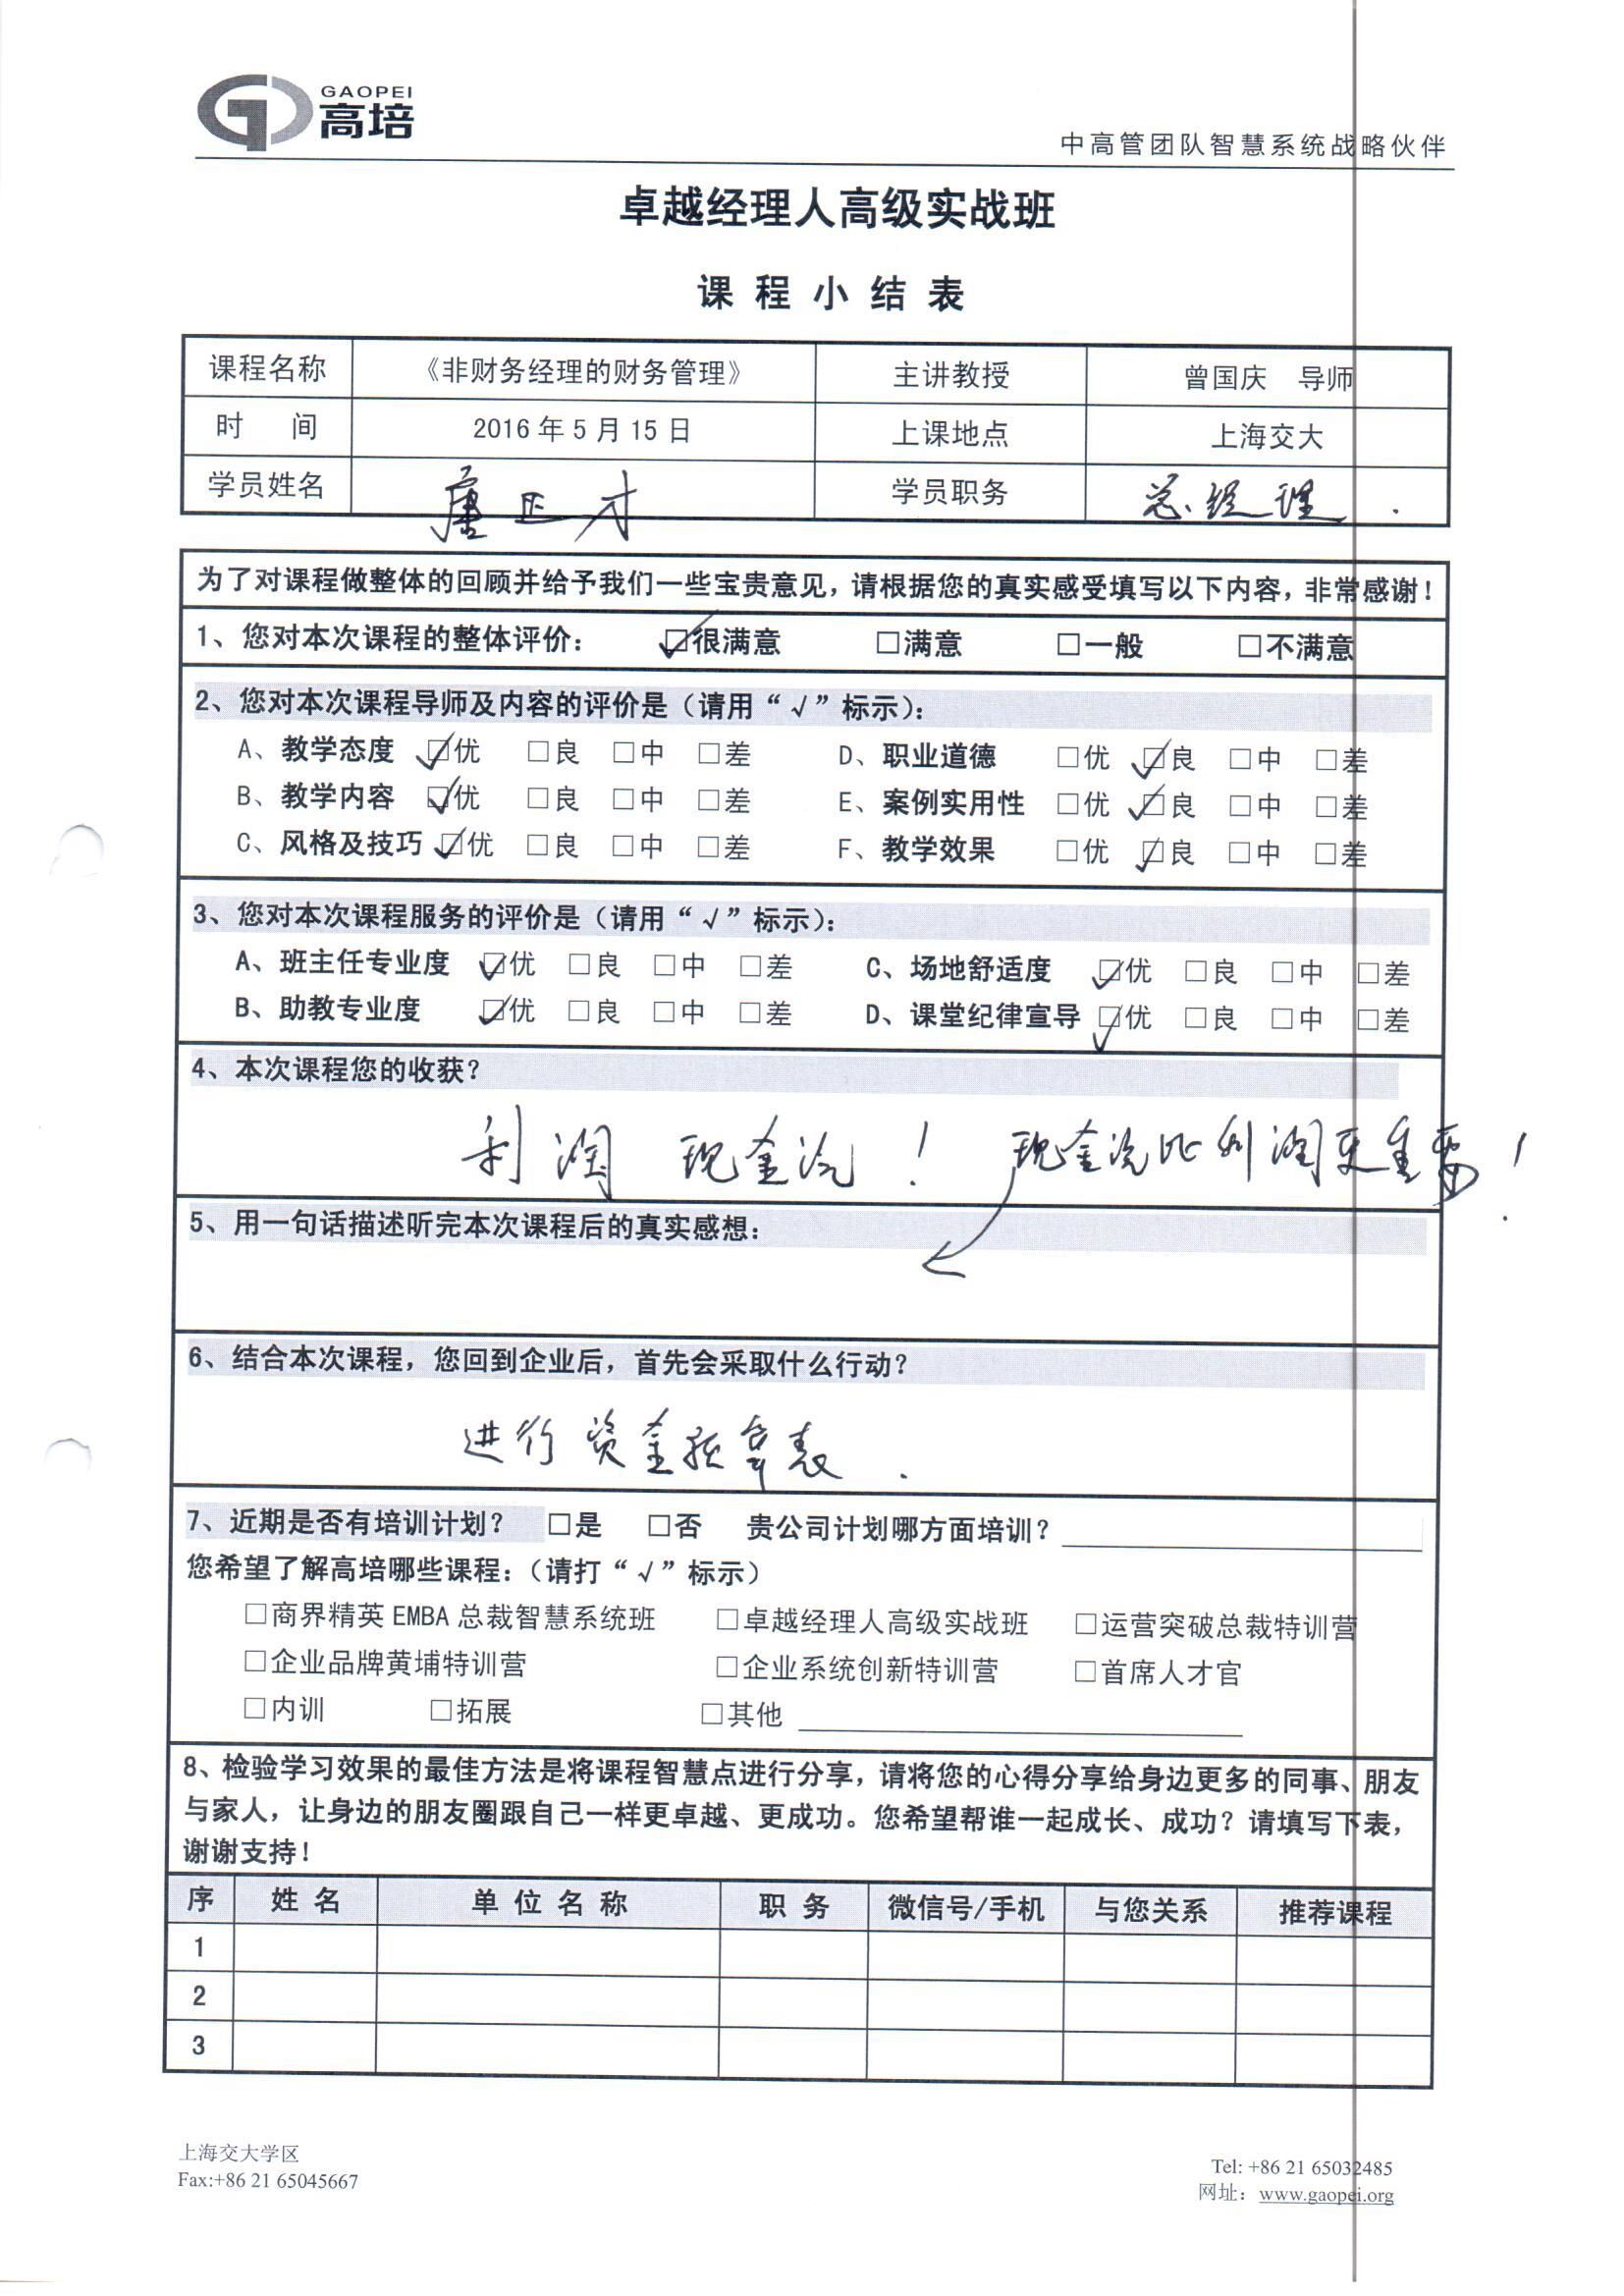 GAOPEI
高培
中高管团队智慧系统战略伙伴
卓越经理人高级实战班
课程小结表
课程名称 《非财务经理的财务管理》 主讲教授 曾国庆 导师
时 间 2016年5月15日 上课地点 上海交大
学员姓名 唐正才 学员职务 总经理.
为了对课程做整体的回顾并给予我们一些宝贵意见，请根据您的真实感受填写以下内容，非常感谢！
1、您对本次课程的整体评价： ☑很满意 □满意 □一般 □不满意
2、您对本次课程导师及内容的评价是（请用“√”标示）：
A、教学态度 ☑优 □良 □中 □差 D、职业道德 □优 ☑良 □中 □差
B、教学内容 ☑优 □良 □中 □差 E、案例实用性 □优 ☑良 □中 □差
C、风格及技巧 ☑优 □良 □中 □差 F、教学效果 □优 ☑良 □中 □差
3、您对本次课程服务的评价是（请用“√”标示）：
A、班主任专业度 ☑优 □良 □中 □差 C、场地舒适度 ☑优 □良 □中 □差
B、助教专业度 ☑优 □良 □中 □差 D、课堂纪律宣导 ☑优 □良 □中 □差
4、本次课程您的收获？
利润 现金流！ 现金流比利润更重要！
5、用一句话描述听完本次课程后的真实感想：
6、结合本次课程，您回到企业后，首先会采取什么行动？
进行资金预算表.
7、近期是否有培训计划？ □是 □否 贵公司计划哪方面培训？
您希望了解高培哪些课程：（请打“√”标示）
□商界精英EMBA总裁智慧系统班 □卓越经理人高级实战班 □运营突破总裁特训营
□企业品牌黄埔特训营 □企业系统创新特训营 □首席人才官
□内训 □拓展 □其他
8、检验学习效果的最佳方法是将课程智慧点进行分享，请将您的心得分享给身边更多的同事、朋友
与家人，让身边的朋友圈跟自己一样更卓越、更成功。您希望帮谁一起成长、成功？请填写下表，
谢谢支持！
序 姓名 单位名称 职务 微信号/手机 与您关系 推荐课程
1
2
3
上海交大学区
Fax:+86 21 65045667
Tel: +86 21 65032485
网址：www.gaopei.org